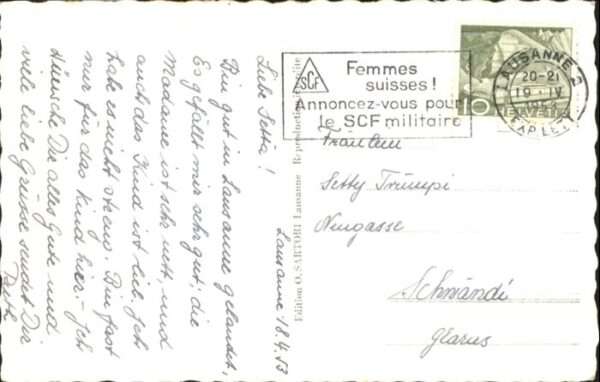 Lausanne 18.4.53
Liebe Setty!
Bin gut in Lausanne gelandet,
Es gefällt mir sehr gut, die
Madame ist sehr nett, und
auch das Kind ist lieb. Ich
habe es nicht streng. Bin fast
nur für das Kind hier. – Ich
wünsche Dir alles Gute und
viele liebe Grüsse sendet Dir
Ruth
SCF
Femmes
suisses!
Annoncez-vous pour
le SCF militaire
LAUSANNE 2
20-21
19. IV
1953
EXP. LET
10
HELVETIA
Fräulein
Setty Trümpi
Neugasse
Schwändi
Glarus
Edition O. SARTORI Lausanne